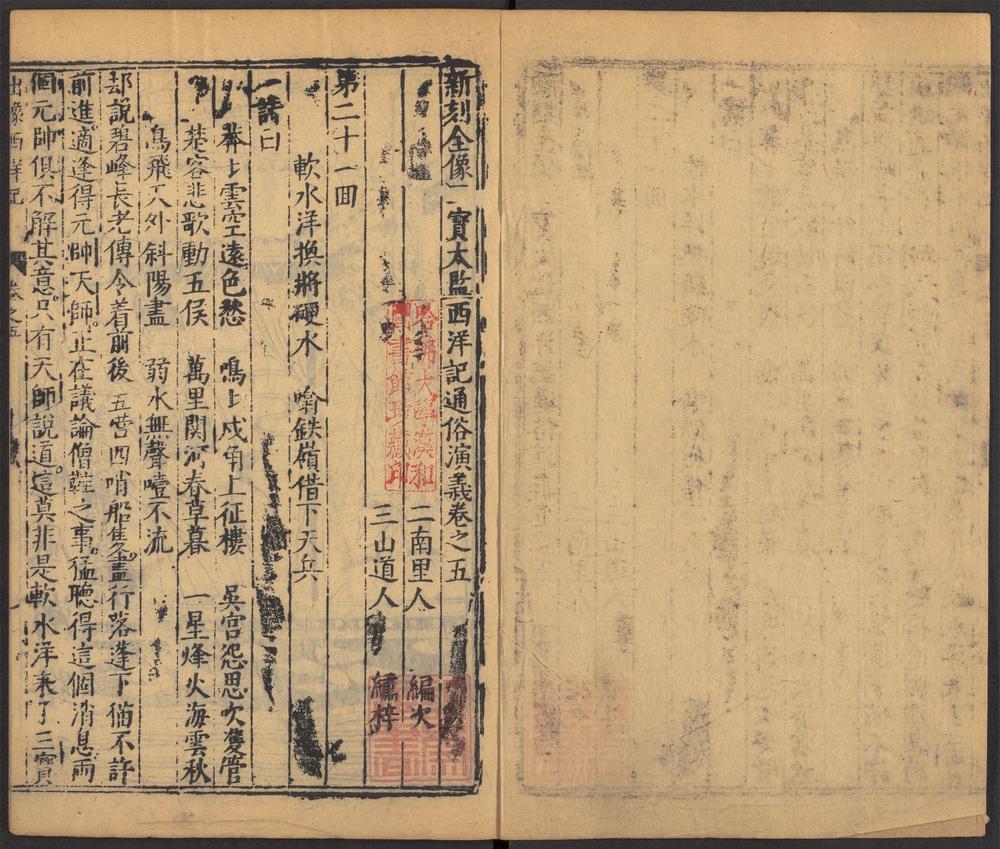 新刻全像三寶太監西洋記通俗演義卷之五
二南里人 編次
三山道人 繡梓
哈佛大學漢和
圖書館珍藏印
第二十一囬
軟水洋換將硬水 喻鉄嶺借下天兵
詩曰
莽〻雲空遠色愁 嗚〻戍角上征樓 吳宮怨思吹雙管
楚客悲歌動五侯 萬里関河春草暮 一星烽火海雲秋
鳥飛天外斜陽盡 弱水無聲噎不流
却說碧峰長老傳令着前後五营四哨船隻盡行落蓬下猫不許
前進適逢得元帅天師正在議論僧鞋之事猛聽得這個消息兩
個元帥俱不解其意只有天師說道這莫非是軟水洋來了三寶
出像西洋記 卷之五